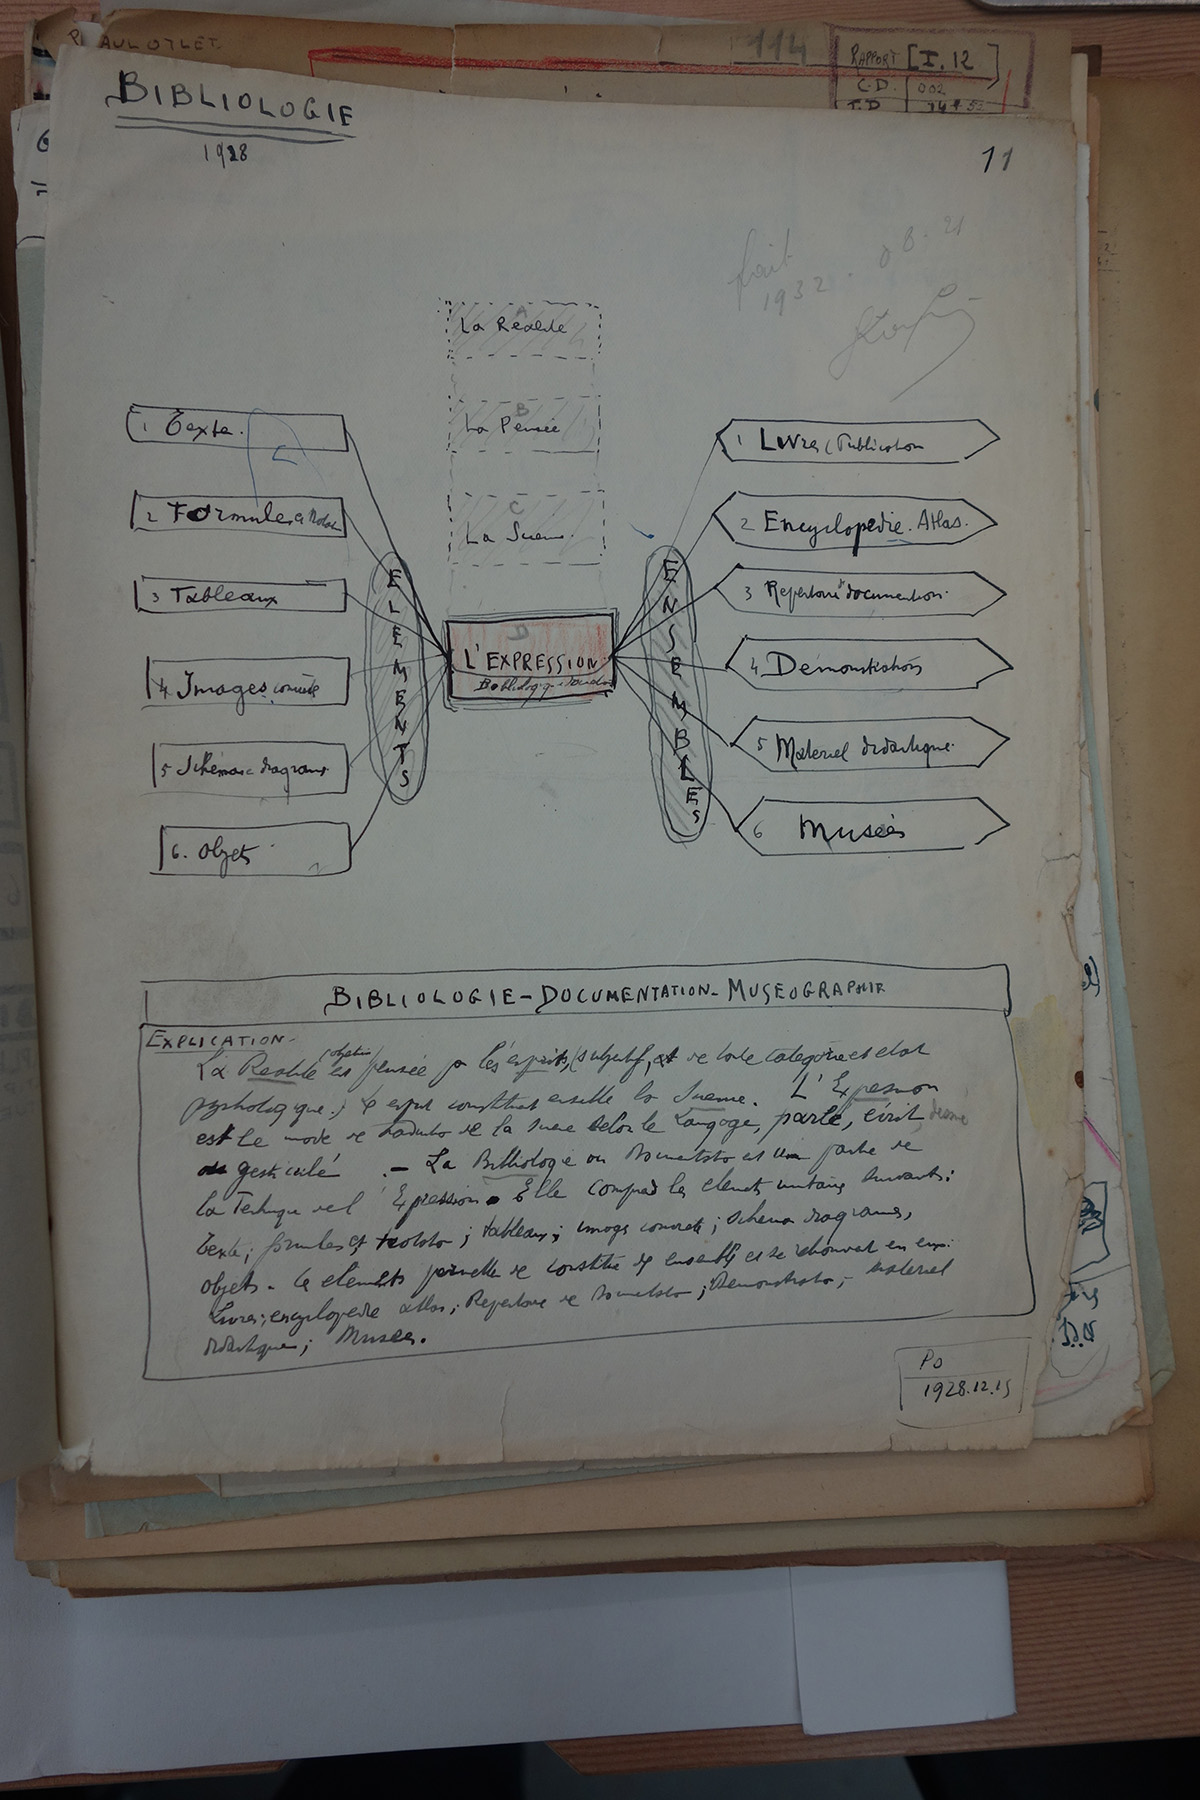 PAUL OTLET.
114
RAPPORT [I.12]
C.D. 002
T.D
BIBLIOLOGIE
1928
11
fait
1932. 08-21
A
La Réalité
B
La Pensée
C
La Science
D
L'EXPRESSION
1 Texte.
2 Formules &
3 Tableaux
4 Images concrète
5 Schémas diagrams
6. Objets
ELEMENTS
ENSEMBLES
1 Livres (Publication
2 Encyclopédie. Atlas.
3 Repertoire documentation.
4 Démonstrations
5 Materiel didactique.
6 Musées
BIBLIOLOGIE-DOCUMENTATION-MUSEOGRAPHIE
EXPLICATION-
La Réalité (objective) est pensée par les esprits, (subjectif, et de toute catégorie et état
psychologique.) constituant ensemble la Science. L'Expression
est le mode de traduire de la science selon le Langage, parlé, écrit, dessiné
ou gesticulé .- La Bibliologie ou Documentation est une partie de
la Technique de l'Expression. Elle comprend les elements unitaires suivants:
Texte; formules et notation; tableaux; image concrete; schema diagrammes,
objets. Ce éléments permettent de constituer des ensembles et se retrouvent en eux:
Livres; encyclopedie atlas; Repertoire de Documentation; Demonstration; materiel
didactique; Musées.
Po
1928.12.15